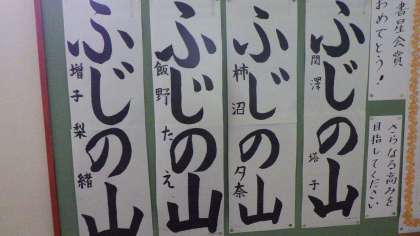 書星会賞
おめでとう!
さらなる高みを
目指してください
ふじの山
関澤 塔子
ふじの山
柿沼 夕奈
ふじの山
飯野 たえ
ふじの山
増子 梨緒